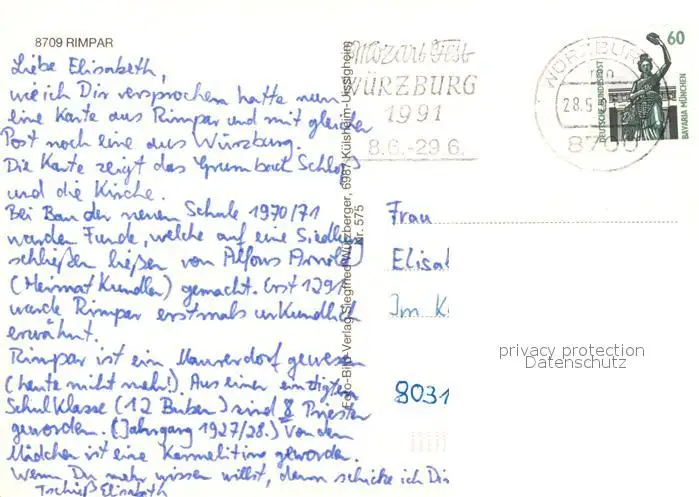 8709 RIMPAR
Liebe Elisabeth,
wie ich Dir versprochen hatte nun
eine Karte aus Rimpar und mit gleicher
Post noch eine aus Würzburg.
Die Karte zeigt das Grumbach Schloß
und die Kirche.
Bei Bau der neuen Schule 1970/71
wurden Funde, welche auf eine Siedlung
schließen ließen von Alfons Arnold
(Heimat Kundler) gemacht. Erst 129
wurde Rimpar erstmals urkundlich
erwähnt.
Rimpar ist ein Maurerdorf gewesen
(heute nicht mehr!) Aus einer einzigen
Schulklasse (12 Buben) sind 8 Priester
geworden. (Jahrgang 1927/28.) Von den
Mädchen ist eine Karmelitine geworden.
Wenn Du mehr wissen willst, dann schicke ich Dir
Tschüß Elisabeth
Echo-Bild-Verlag Siegfried Würzberger, 6987 Külsheim-Uissigheim
Nr. 575
Mozart Fest
WÜRZBURG
1991
8.6.-29.6.
WÜRZBURG
28.5.
8700
60
DEUTSCHE BUNDESPOST
BAVARIA MÜNCHEN
Frau
Elisa
Im K
8031
privacy protection
Datenschutz